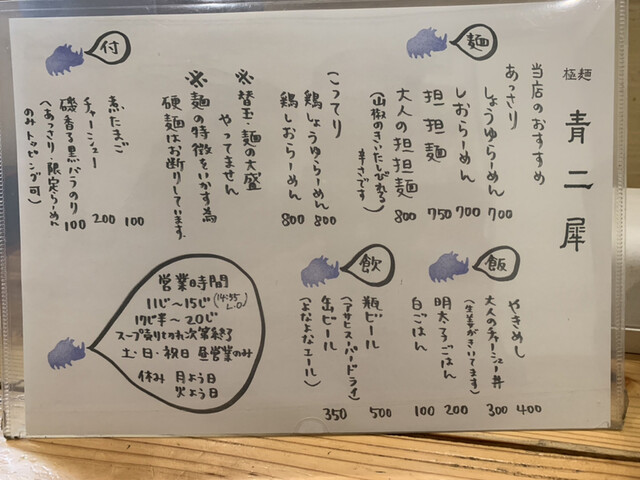 極麺
青二犀
麺
当店のおすすめ
あっさり
しょうゆらーめん 700
しおらーめん 700
担担麺 750
大人の担担麺 800
(山椒のきいたしびれる
辛さです)
こってり
鶏しょうゆらーめん 800
鶏しおらーめん 800
※替玉・麺の大盛
やってません
※麺の特徴をいかす為
硬麺はお断りしています。
付
煮たまご 100
チャーシュー 200
磯香る黒バラのり 100
(あっさり・限定らーめん
のみトッピング可)
飯
やきめし 400
大人のチャーシュー丼 300
(生姜がきいてます)
明太子ごはん 200
白ごはん 100
飲
瓶ビール 500
(アサヒスーパードライ)
缶ビール 350
(よなよなエール)
営業時間
11じ〜15じ(14:35 L.O)
17じ半〜20じ
スープ売りきれ次第終了
土・日・祝日 昼営業のみ
休み 月よう日
火よう日